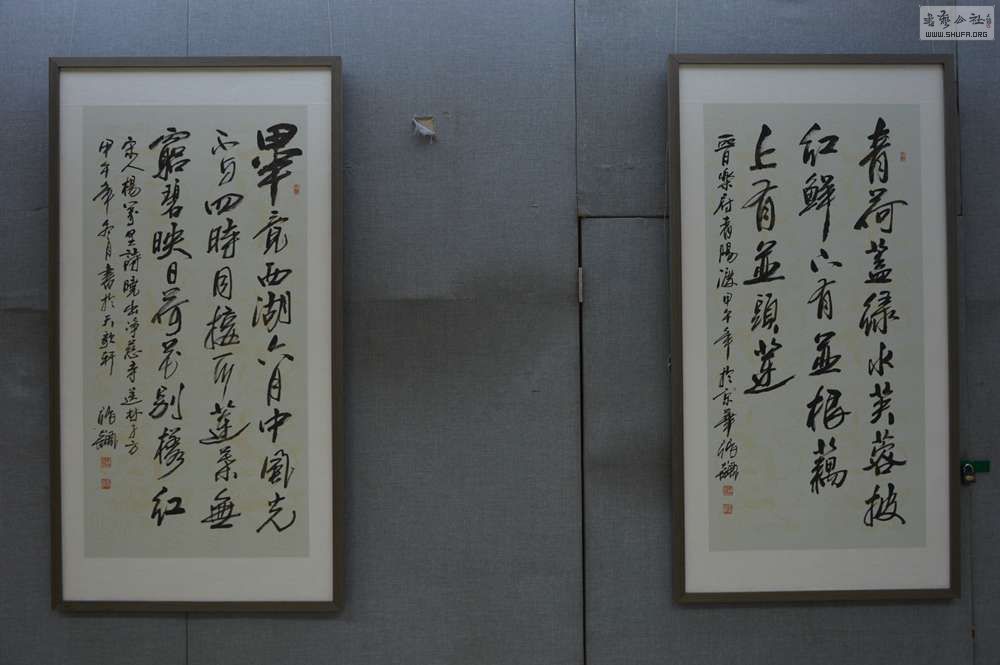 青荷蓋緑水芙蓉披
紅鮮下有並根藕
上有並頭蓮
晋樂府青陽渡甲午年於京華
畢竟西湖六月中風光
不与四時同接天蓮葉無
窮碧映日荷花别樣紅
宋人楊萬里詩曉出净慈寺送林子方
甲午年冬月書於天歌轩
書藝公社
WWW.SHUFA.ORG